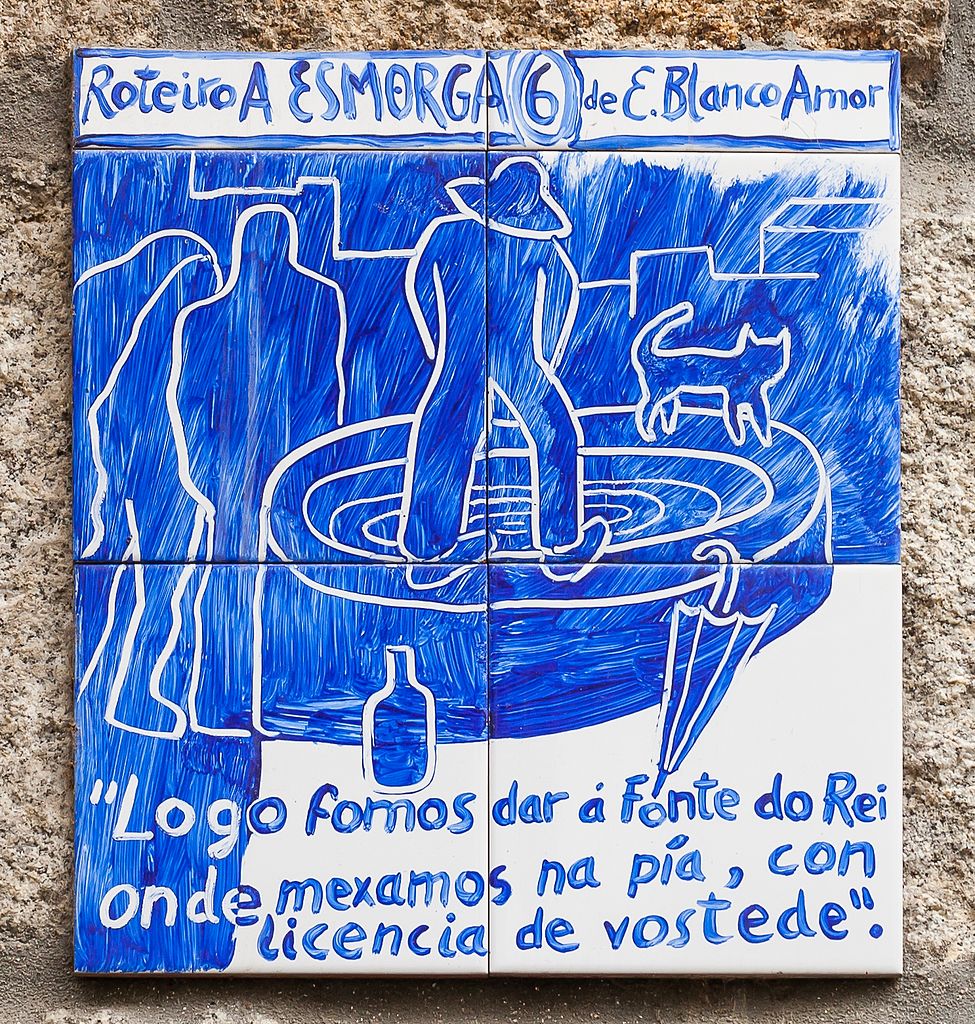 Roteiro A ESMORGA 6 de E. Blanco Amor
"Logo fomos dar á Fonte do Rei
onde mexamos na pía, con
licencia de vostede".